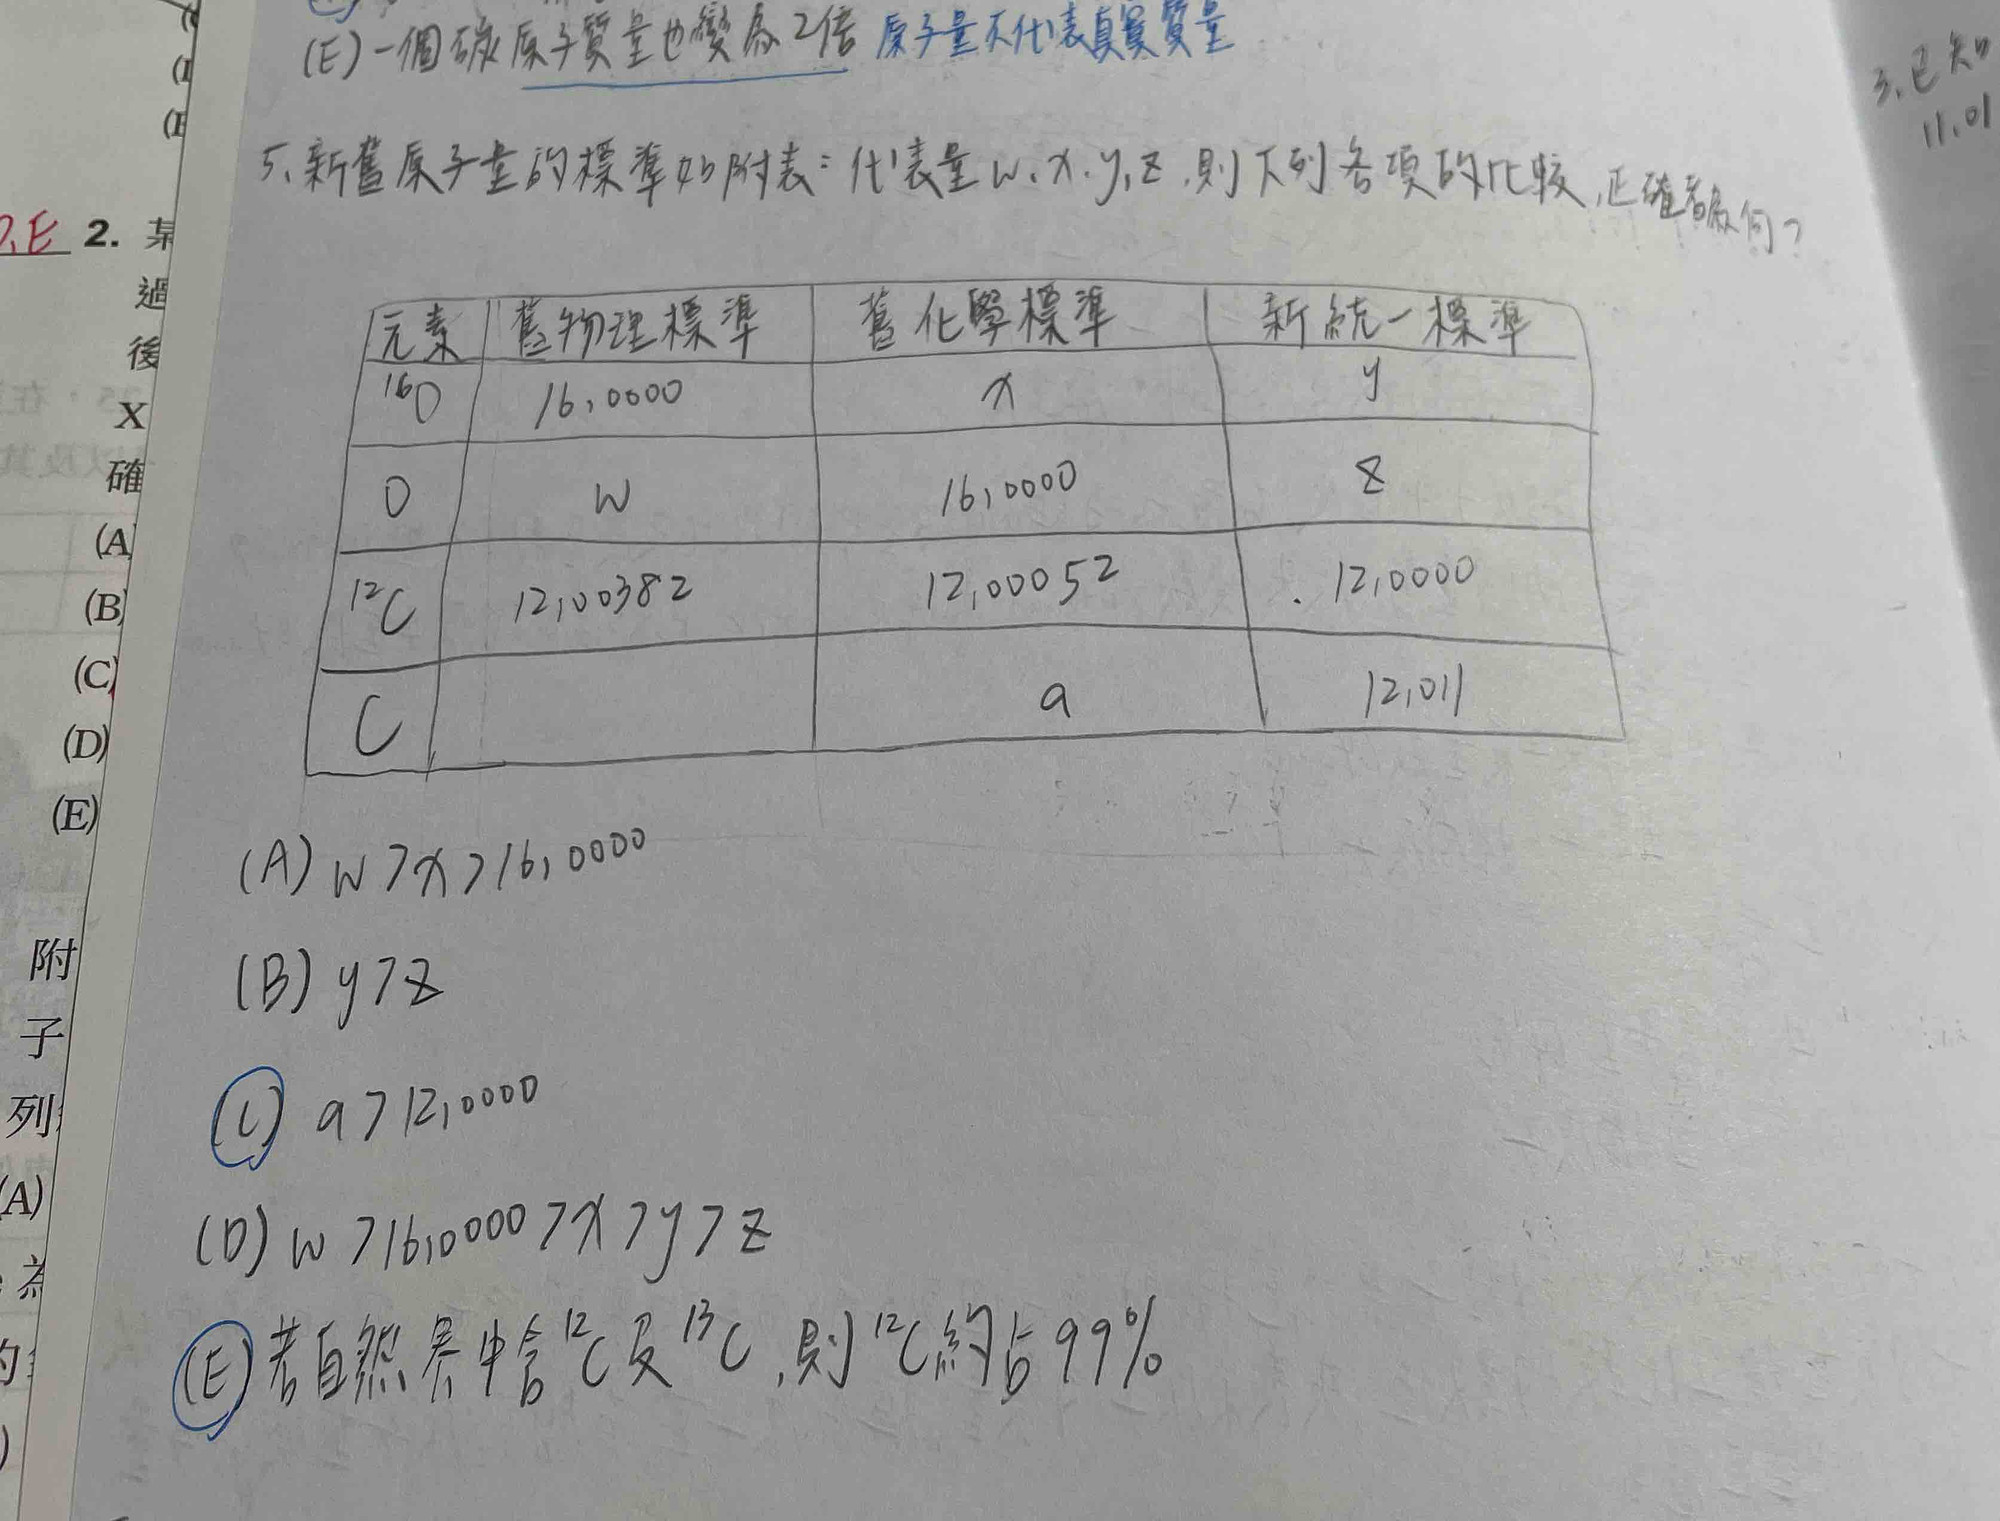 (E)一個碳原子質量也變為2倍 原子量不代表真實質量
3.已知
11.01
5.新舊原子量的標準如附表:代表量w.x.y,z,則下列各項的比較,正確者為何?
元素 舊物理標準 舊化學標準 新統一標準
¹⁶O 16,0000 x y
O w 16,0000 z
¹²C 12,00382 12,00052 12,0000
C a 12,011
(A) w>x>16,0000
(B) y>z
(C) a>12,0000
(D) w>16,0000>x>y>z
(E) 若自然界中含¹²C及¹³C,則¹²C約占99%
D,E 2. 某
過
後
X
確
(A
(B)
(C)
(D)
(E)
附
子
列
(A)
為
的